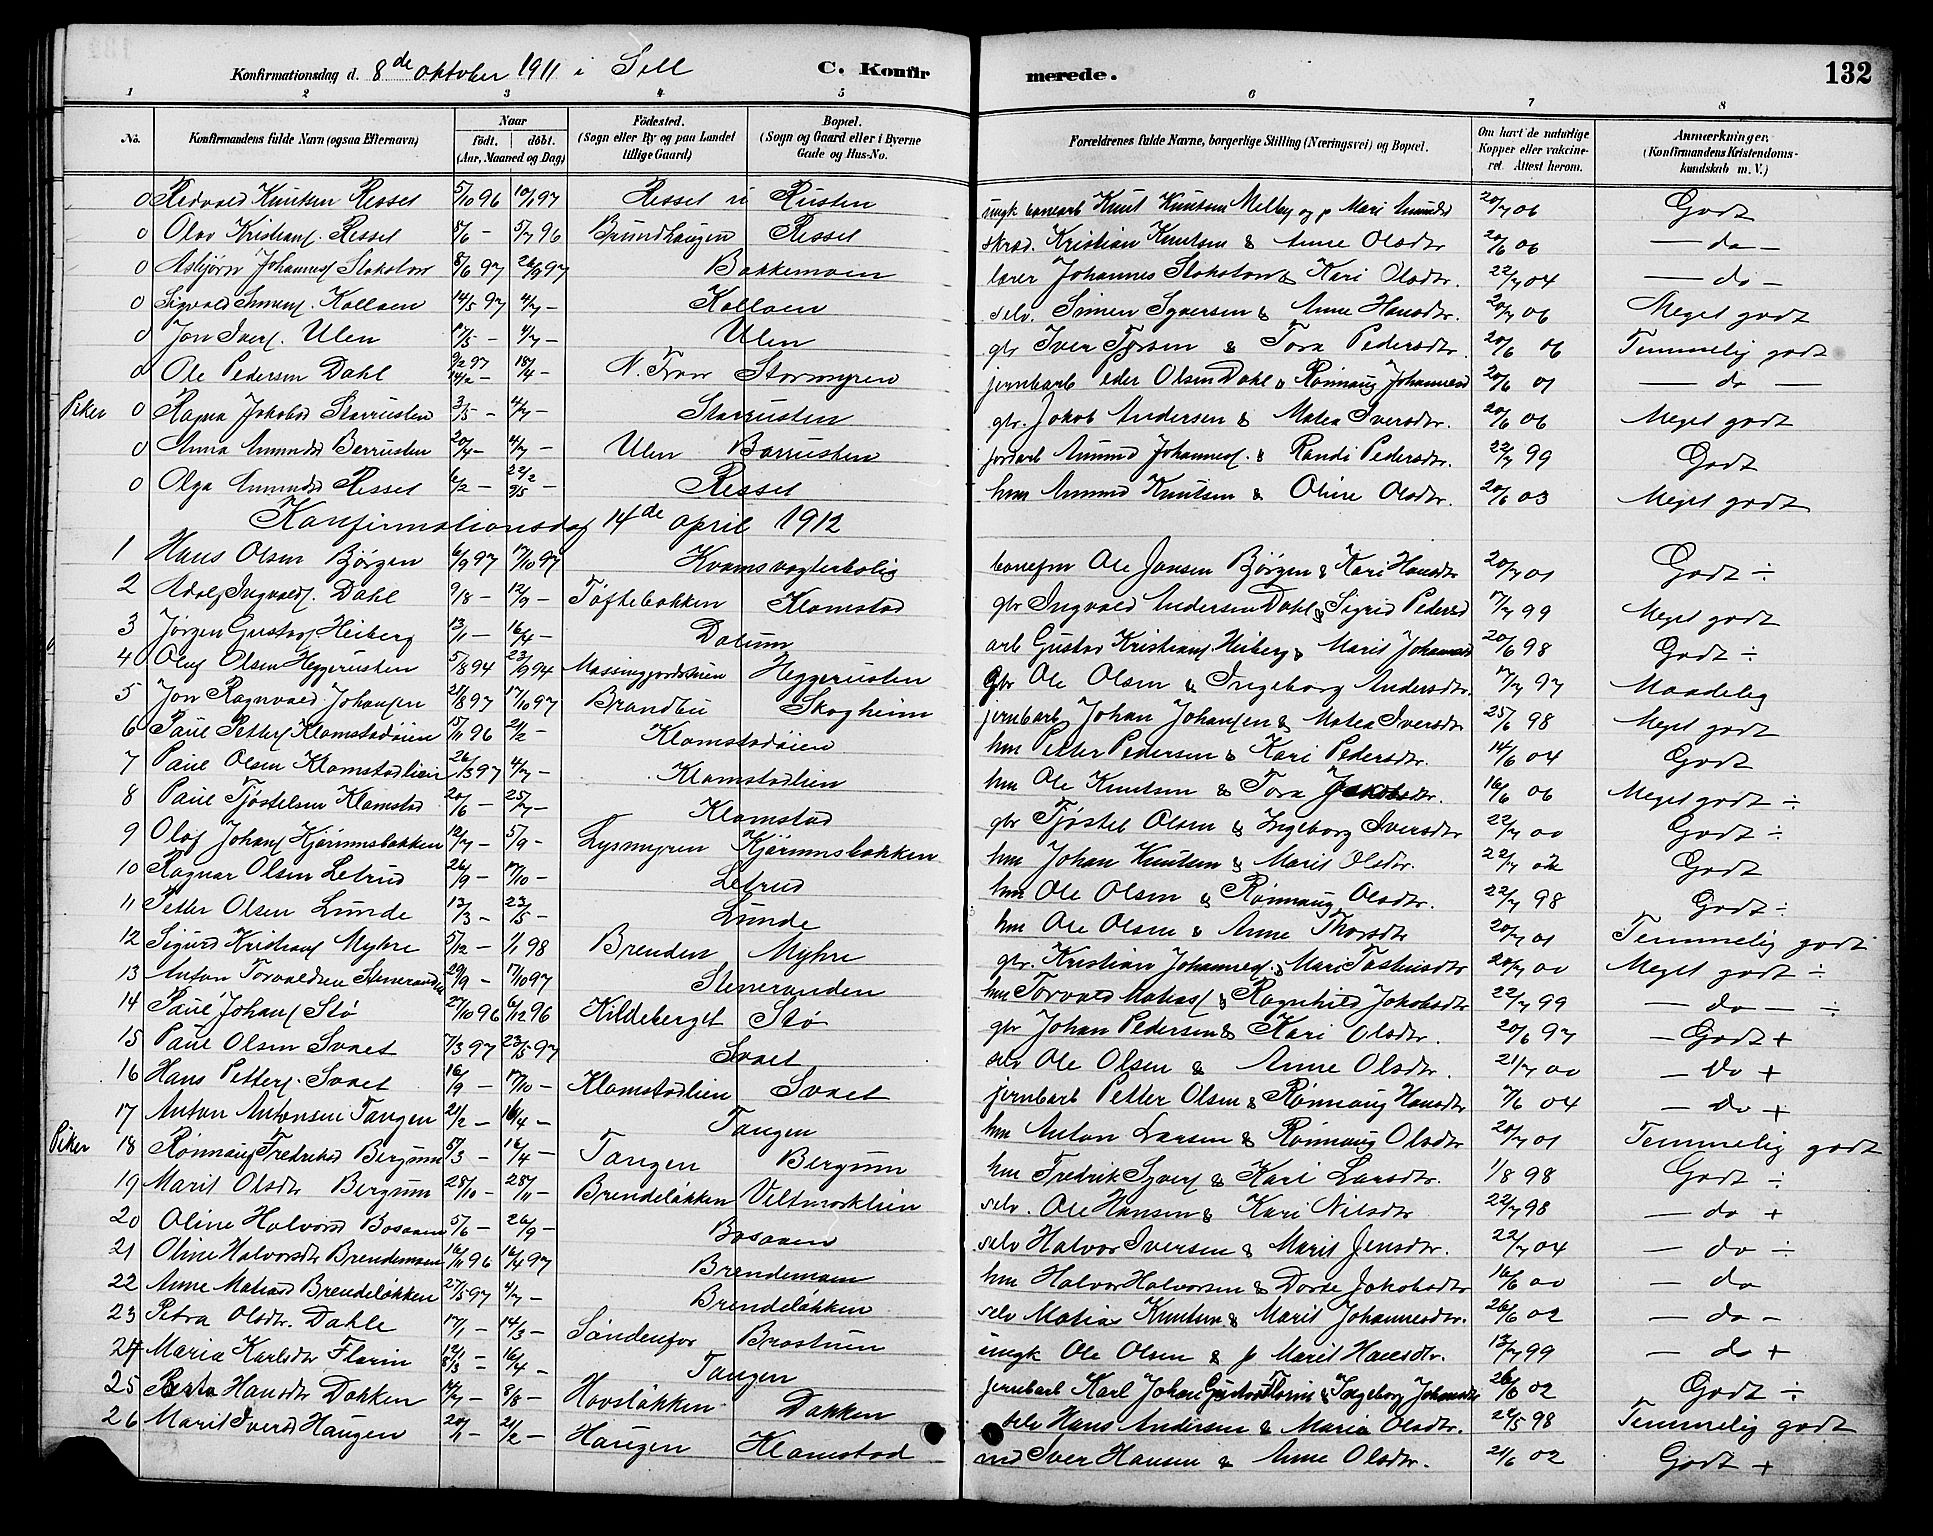 Konfirmationsdag d. 8de oktober 1911 i Sell C. Konfir merede. 132
1 2 3 4 5 6 7 8
No. Konfirmandens fulde Navn (ogsaa Efternavn) Naar født. døbt. (Aar, Maaned og Dag) Födested. (Sogn eller By og paa Landet tillige Gaard) Bopæl. (Sogn og Gaard eller i Byerne Gade og Hus-No. Forældrenes fulde Navne, borgerlige Stilling (Næringsvei) og Bopæl. Om havt de naturlige Kopper eller vakcineret. Attest herom. Anmærkninger. (Konfirmandens Kristendomskundskab m. V.)
0 Redvald Knutsen Ressel 5/10 96 10/1 97 Ressel Rusten ungk banearb Knut Knutsen Melby og p Mari Amundsd 20/7 06 Godt
0 Olav Kristians. Ressel 5/6 - 5/7 96 Brundhaugen Ressel skræd. Kristian Knutsen & Anne Olsdtr 20/6 06 — do —
0 Asbjørn Johannes Stokstad 8/6 97 26/9 97 Bakkemoen lærer Johannes Stokstad & Kari Olsdtr. 22/7 04 — do —
0 Sigvald Simens. Kolloen 14/5 97 4/7 - Kolloen selv. Simen Syversen & Anne Hansdtr. 20/7 06 Meget godt
0 Jon Ivers. Ulen 17/5 - 4/7 - Ulen gbr Iver Fjorsen & Tora Pedersdtr. 20/6 06 Temmelig godt
0 Ole Pedersen Dahl 9/2 97 14/2 - 18/4 - N. Fron Stormyren jernbarb Peder Olsen Dahl & Rønnaug Johannesd 20/6 01 — do —
Piker 0 Ragna Jakobsd Starrusten 3/5 - 4/7 - Starrusten gbr. Jakob Andersen & Matea Iversdtr. 20/6 06 Meget godt
0 Anna Amundsd Barrusten 20/4 - 4/7 - Ulen Barrusten jordarb Amund Johannes. & Randi Pedersdtr. 22/7 99 Godt
0 Olga Amundsd Ressel 6/2 - 22/2 9/5 - Ressel hm Amund Knutsen & Oline Olsdtr. 20/6 03 Meget godt
Konfirmationsdag 14de april 1912
1 Hans Olsen Bjørgen 6/9 97 17/10 97 Kvamsvogterbolig baneform Ole Jansen Bjørgen & Kari Hansdtr 20/7 01 Godt ÷
2 Adolf Ingvalds. Dahl 9/8 - 12/9 - Toftebakken Klomstad gbr Ingvald Andersen Dahl & Sigrid Pedersd 17/7 99 Meget godt
3 Jørgen Gustavs Heiberg 13/1 - 16/4 - Dalum arb Gustav Kristians Heiberg & Marit Johannesd 20/6 98 Godt ÷
4 Oluf Olsen Heggerusten 5/8 94 23/9 94 Heggerusten Gbr Ole Olsen & Ingeborg Andersdtr. 17/7 97 Maadelig
5 Jon Ragnvald Johansen 21/8 97 17/10 97 Brandbu Skogheim jernbarb Johan Johansen & Matea Iversdtr 25/6 98 Meget godt
6 Paul Petters Klomstadøien 15/11 96 21/2 - Klomstadøien hm Petter Pedersen & Kari Pedersdtr. 14/6 04 Godt
7 Paul Olsen Klomstadlien 26/3 97 4/7 - Klomstadlien hm Ole Knutsen & Tora Jakobsdtr. 16/6 06 Meget godt ÷
8 Paul Tjøstelsen Klomstad 20/6 - 25/7 - Klomstad gbr Tjøstel Olsen & Ingeborg Iversdtr 22/7 00 Godt ÷
9 Olaf Johans Kjørumsbakken 12/7 - 5/9 - Lysmyren Kjørumsbakken hm Johan Knutsen & Marit Olsdtr. 22/7 02 Godt
10 Ragnar Olsen Letrud 26/9 - 17/10 - Letrud hm Ole Olsen & Rønnaug Olsdtr. 22/7 98 Godt ÷
11 Petter Olsen Lunde 13/3 - 23/5 - Lunde hm Ole Olsen & Anne Thorsdtr 20/7 01 Temmelig godt
12 Sigurd Kristians Myhre 5/12 - 1/1 98 Brenden Myhre gbr. Kristian Johannes. & Mari 20/7 00 Meget godt ÷
13 Anton Torvaldsen Steneranden 29/9 - 17/10 97 Steneranden hm Torvald Matias & Ragnhild Jakobsdtr 22/7 99 — do — ÷
14 Paul Johans Stø 27/10 96 6/12 96 Kildeberget Stø gbr Johan Pedersen & Kari Olsdtr. 20/6 97 — Godt +
15 Paul Olsen Svaet 7/3 97 23/5 97 Svaet selv Ole Olsen & Anne Olsdtr. 21/7 00 — do +
16 Hans Petters. Svaet 16/9 - 17/10 - Klomstadlien Svaet jernbarb Petter Olsen & Rønnaug Hansdtr 7/6 04 — do +
17 Anton Antonsen Tangen 21/2 - 16/4 - Tangen hm Anton Larsen & Rønnaug Olsdtr 20/7 01 Temmelig godt
Piker 18 Rønnaug Fredriksd Bergum 5/3 - 16/4 - Tangen Bergum hm Fredrik Syvers & Kari Larsdtr. 1/8 98 Godt ÷
19 Marit Olsdtr Bergum 28/10 - 28/11 - Brendeløkken Veltmorklien selv. Ole Hansen & Kari Nilsdtr 22/7 98 — do +
20 Oline Halvorsd Bosaaen 5/6 - 26/9 - Bosaaen selv Halvor Iversen & Marit Jensdtr. 22/7 04 — do ÷
21 Oline Halvorsdtr Brendemoen 16/11 96 16/4 97 Brendemoen hm Halvor Halvorsen & Dorde Jakobsdtr 16/6 00 — do
22 Anne Matiasd Brendeløkken 27/5 97 4/7 - Brendeløkken selv Matias Knutsen & Marit Johannesdtr. 26/6 02 — do -
23 Petra Olsdtr. Dahle 17/1 - 14/3 - Søndenfor Brostuen ungk Ole Olsen & p Marit Hansdtr. 13/7 99 — do +
24 Maria Karlsdtr Florin 12/1 8/3 - 16/4 - Tangen jernbarb Karl Johan Gustav Florin & Ingeborg Johansdtr 26/6 02 Godt ÷
25 Hansdtr Dokken 4/7 - 8/8 - Hovsløkken Dokken selv Hans Andersen & Maria Olsdtr. 24/5 98 Temmelig godt
26 Marit Iversd Haugen 20/1 - 21/2 - Haugen Klomstad Iver Hansen & Anne Olsdtr. 21/6 02 Godt +